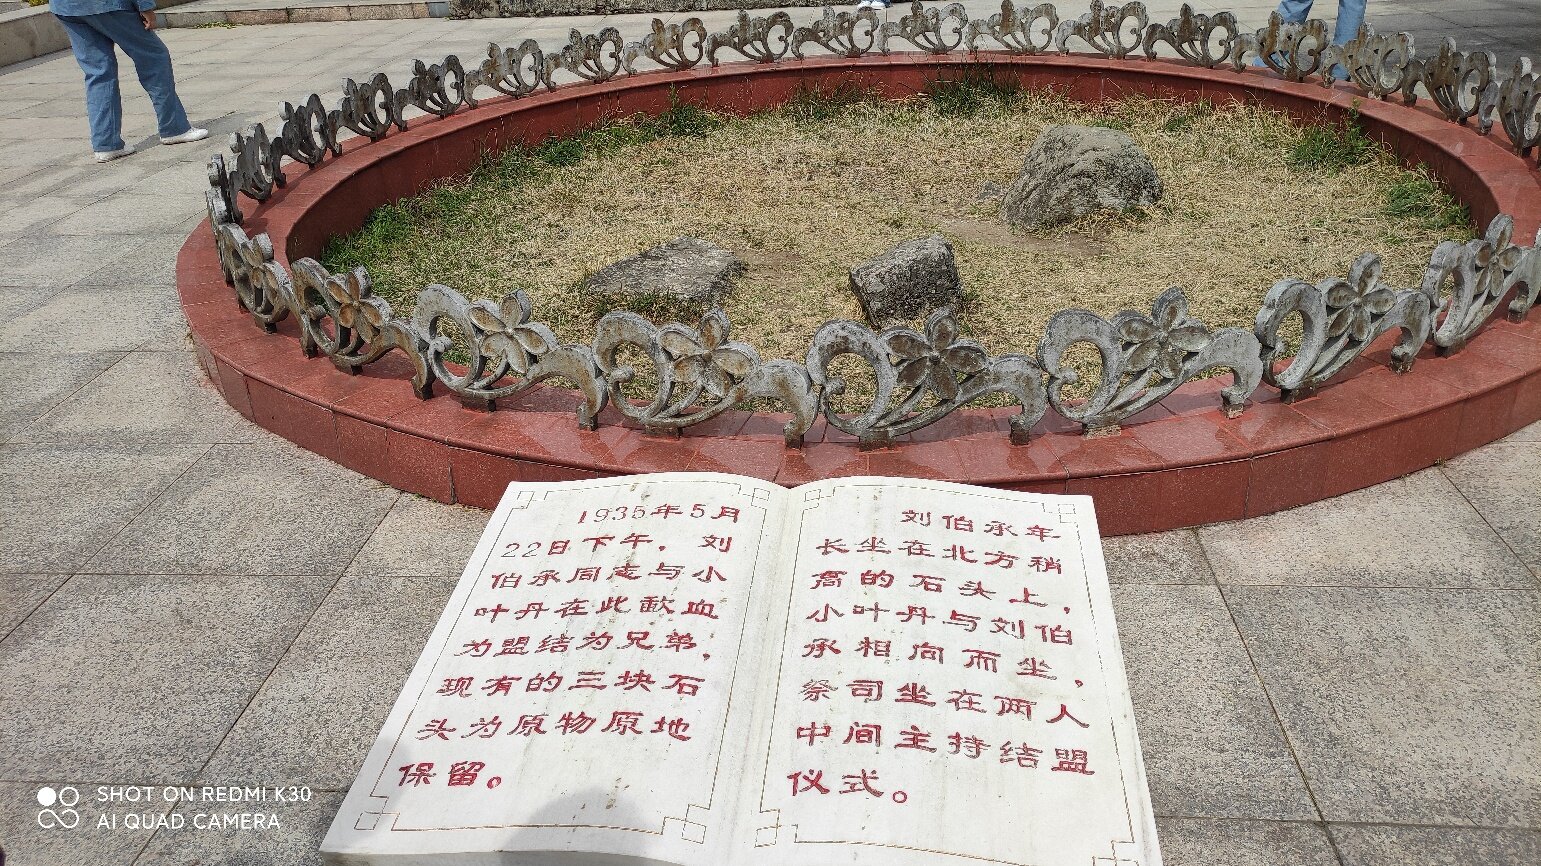 1935年5月
22日下午，刘
伯承同志与小
叶丹在此歃血
为盟结为兄弟，
现有的三块石
头为原物原地
保留。
刘伯承年
长坐在北方稍
高的石头上，
小叶丹与刘伯
承相向而坐，
祭司坐在两人
中间主持结盟
仪式。
SHOT ON REDMI K30
AI QUAD CAMERA